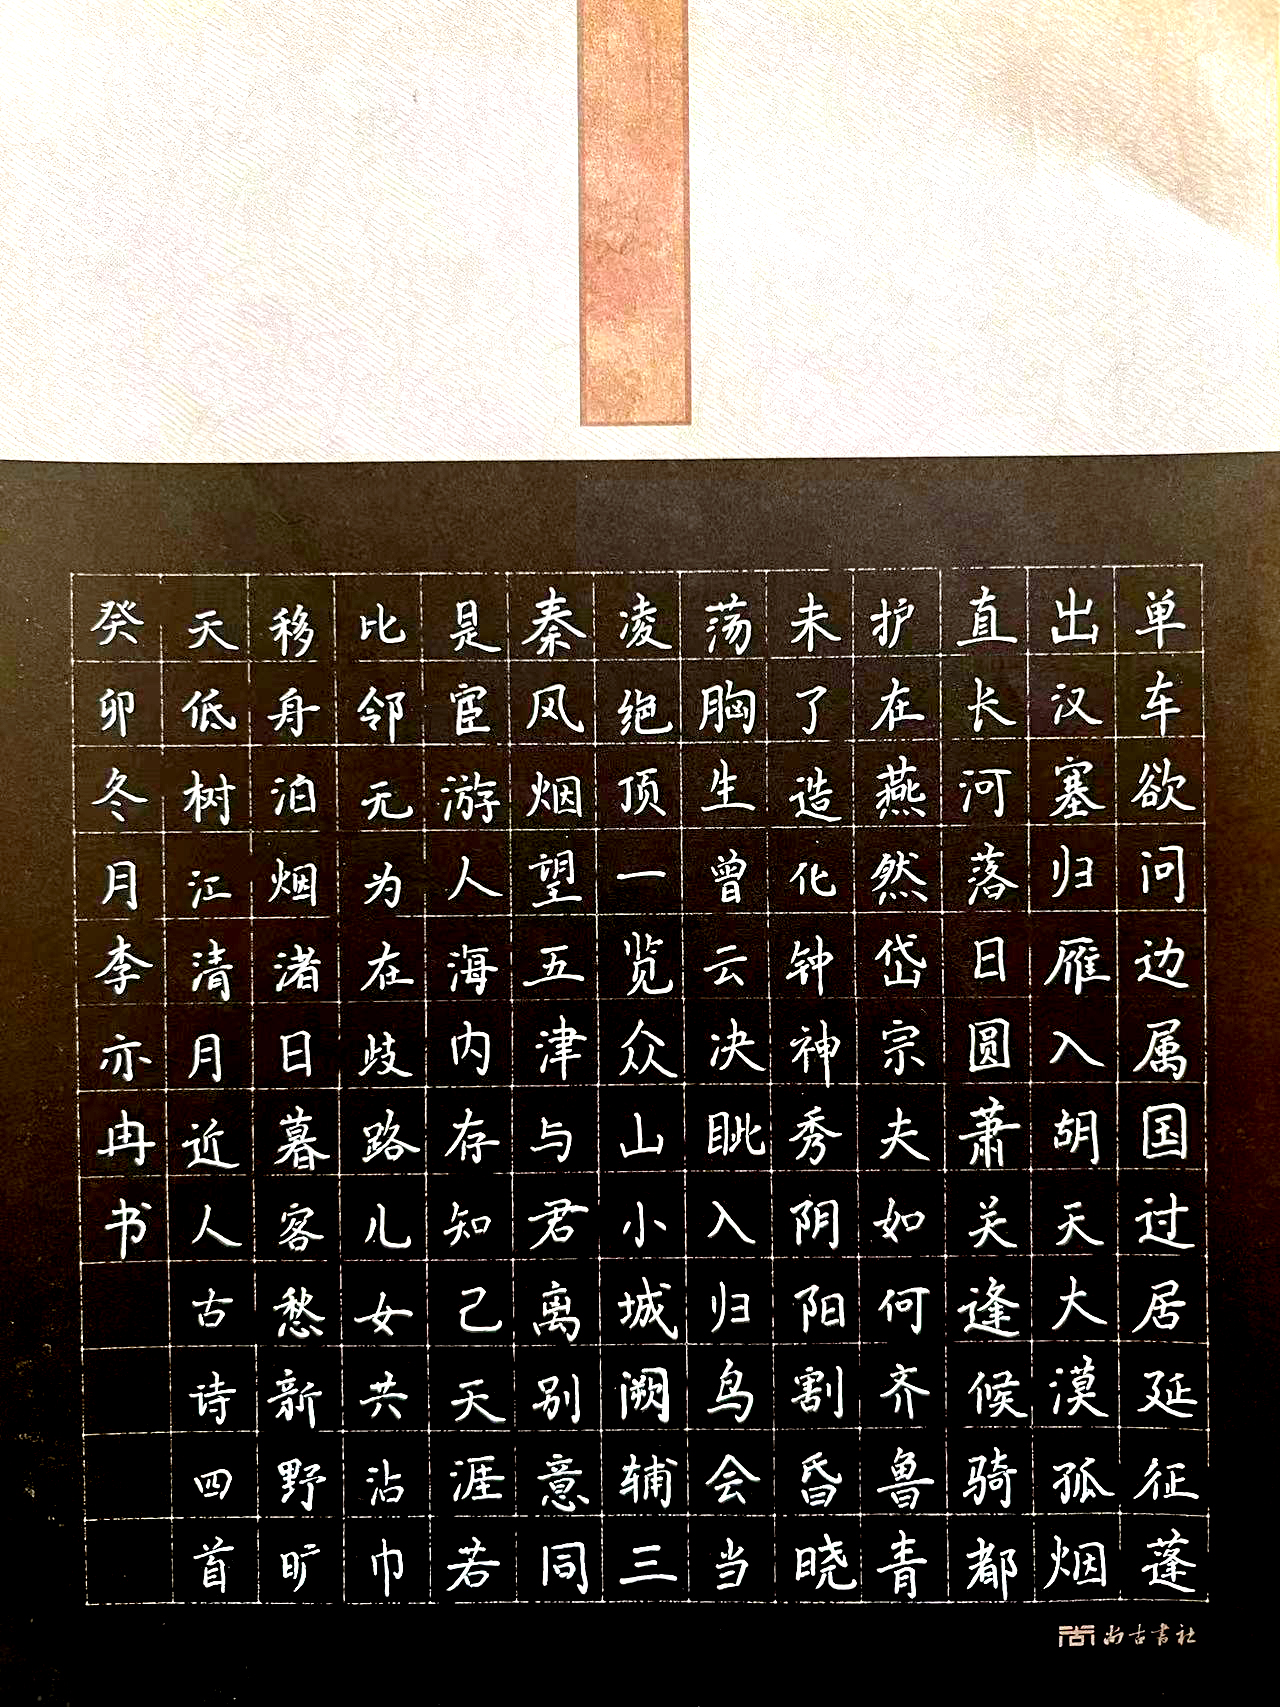 单车欲问边属国过居延征蓬
出汉塞归雁入胡天大漠孤烟
直长河落日圆萧关逢候骑都
护在燕然岱宗夫如何齐鲁青
未了造化钟神秀阴阳割昏晓
荡胸生曾云决眦入归鸟会当
凌绝顶一览众山小城阙辅三
秦风烟望五津与君离别意同
是宦游人海内存知己天涯若
比邻无为在歧路儿女共沾巾
移舟泊烟渚日暮客愁新野旷
天低树江清月近人古诗四首
癸卯冬月李亦冉书
尚古書社